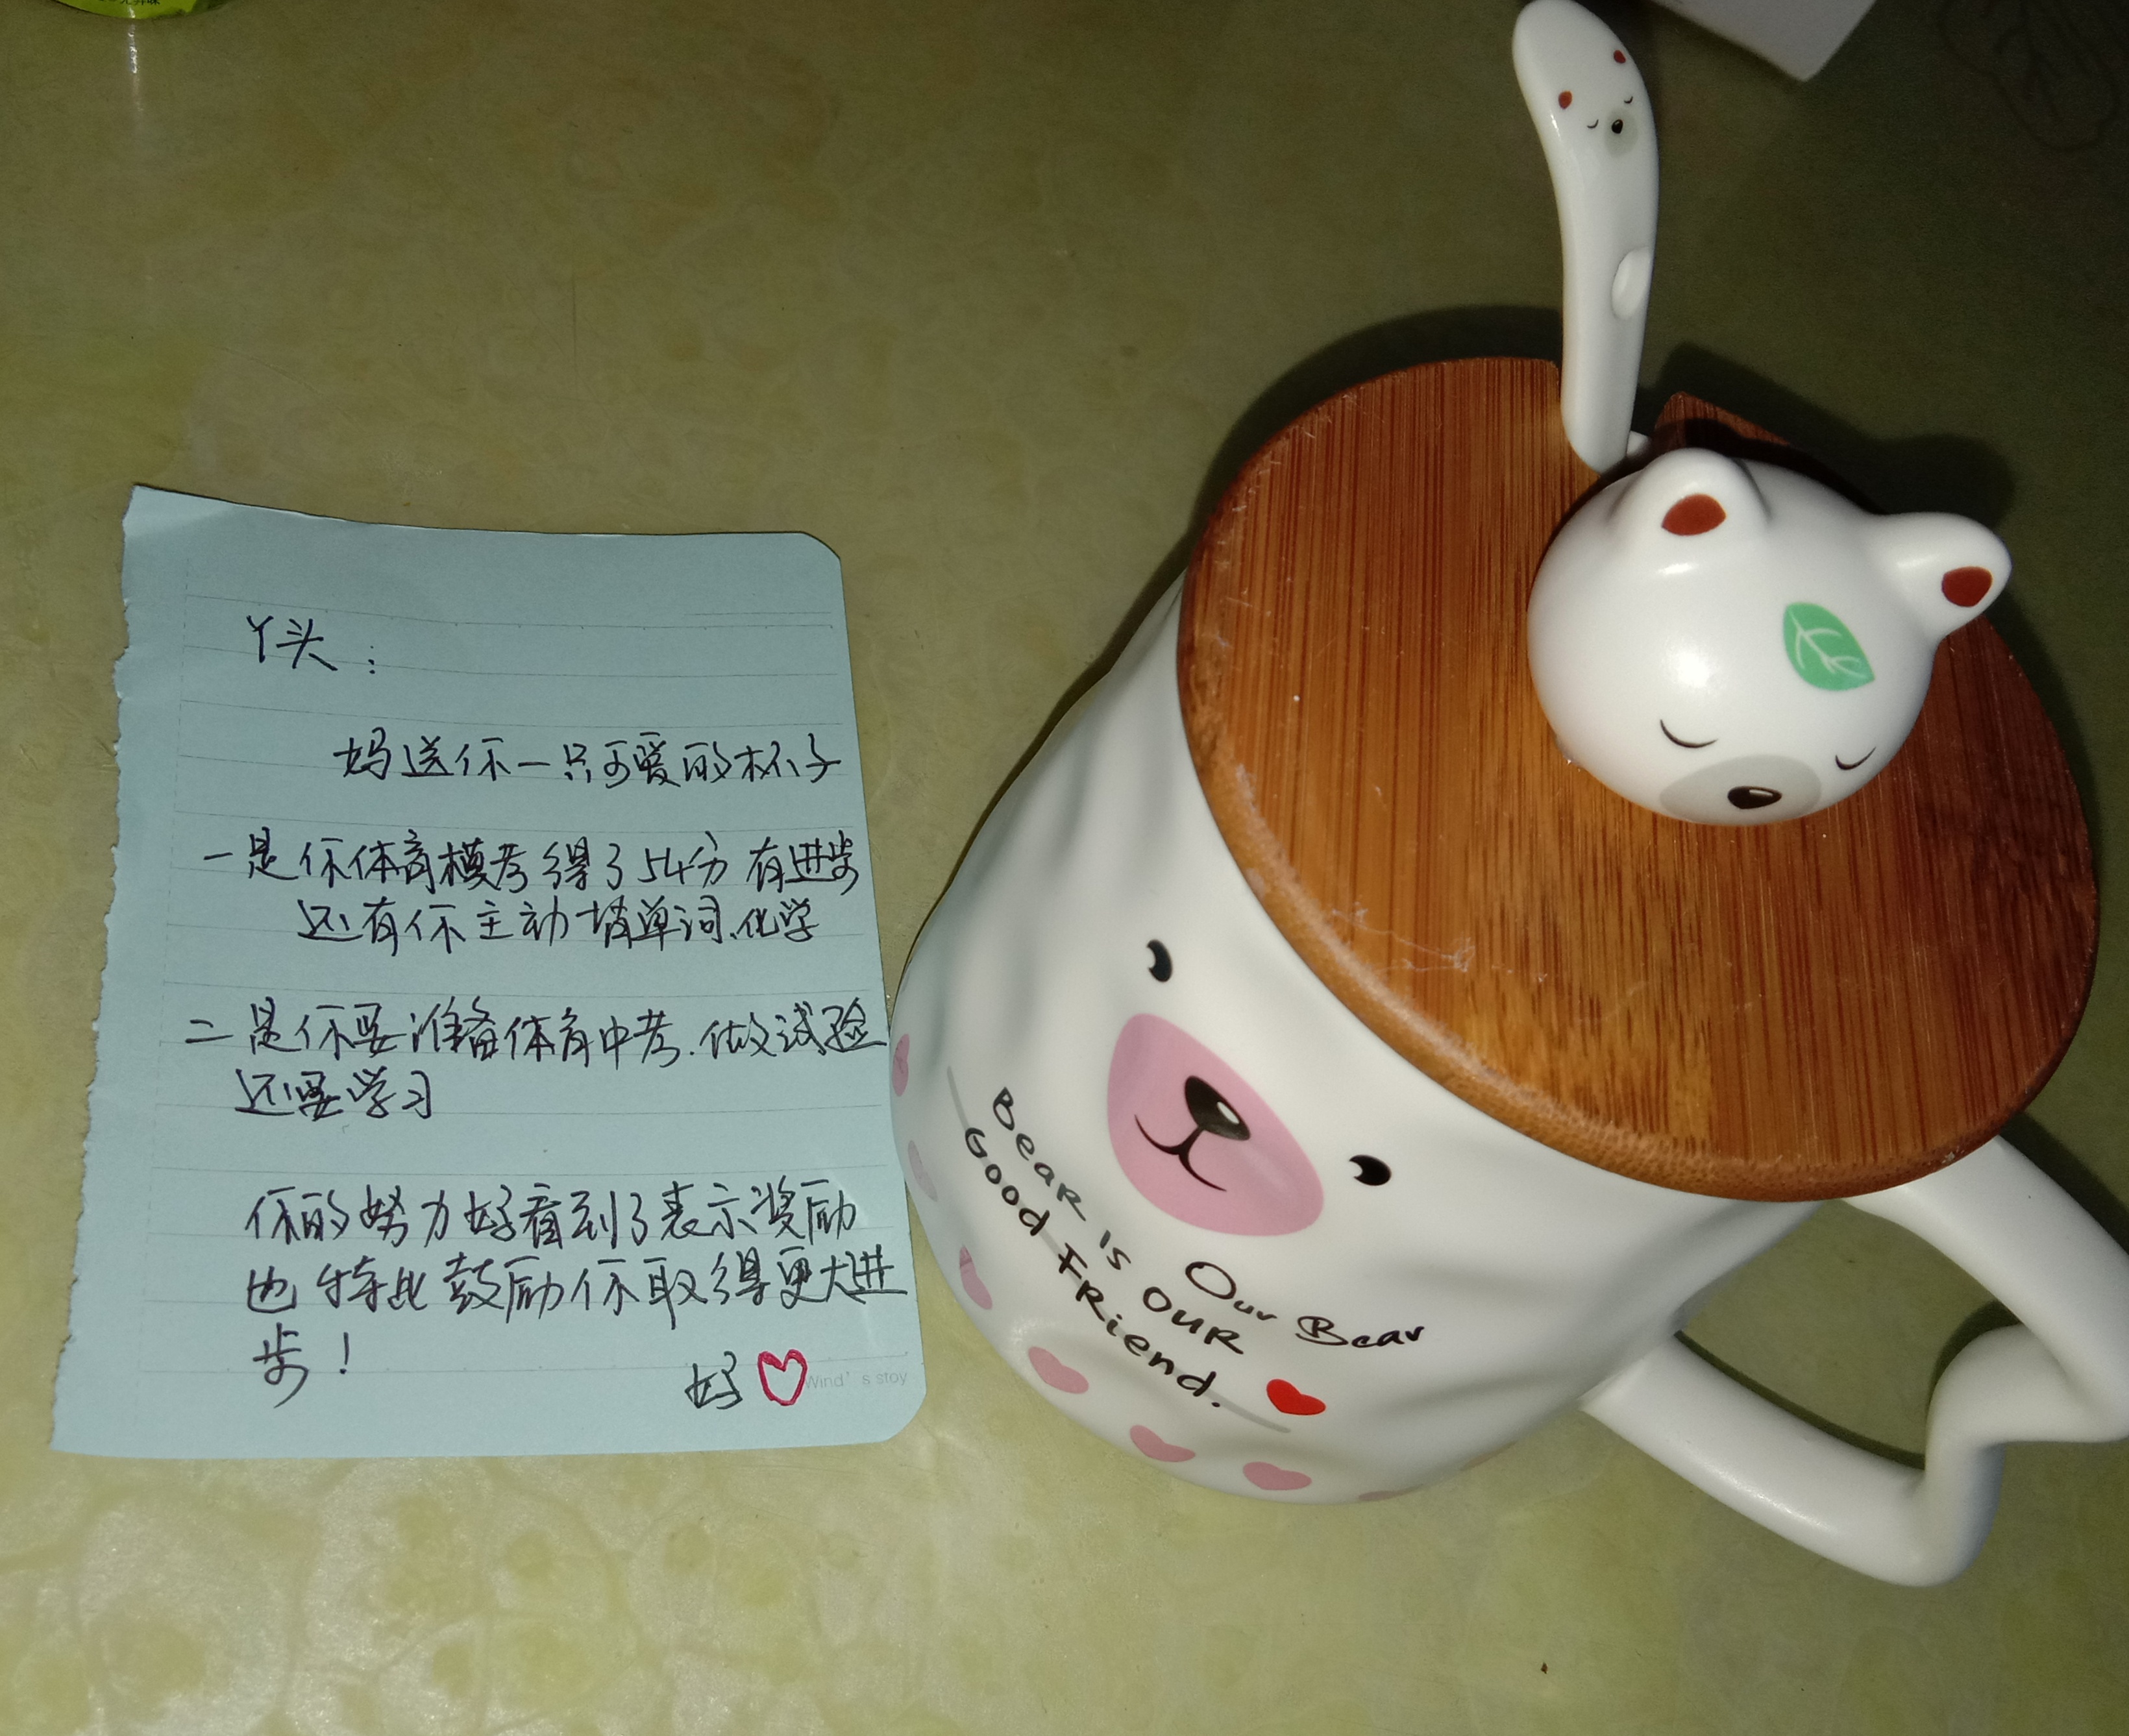 丫头：
妈送你一只可爱的杯子
一是你体育模考得了54分 有进步
还有你主动背单词.化学
二是你要准备体育中考.做试验
还要学习
你的努力妈看到了表示奖励
也特此鼓励你取得更大进
步！
妈
Wind's stoy
Bear is our
Good Friend.
Our Bear